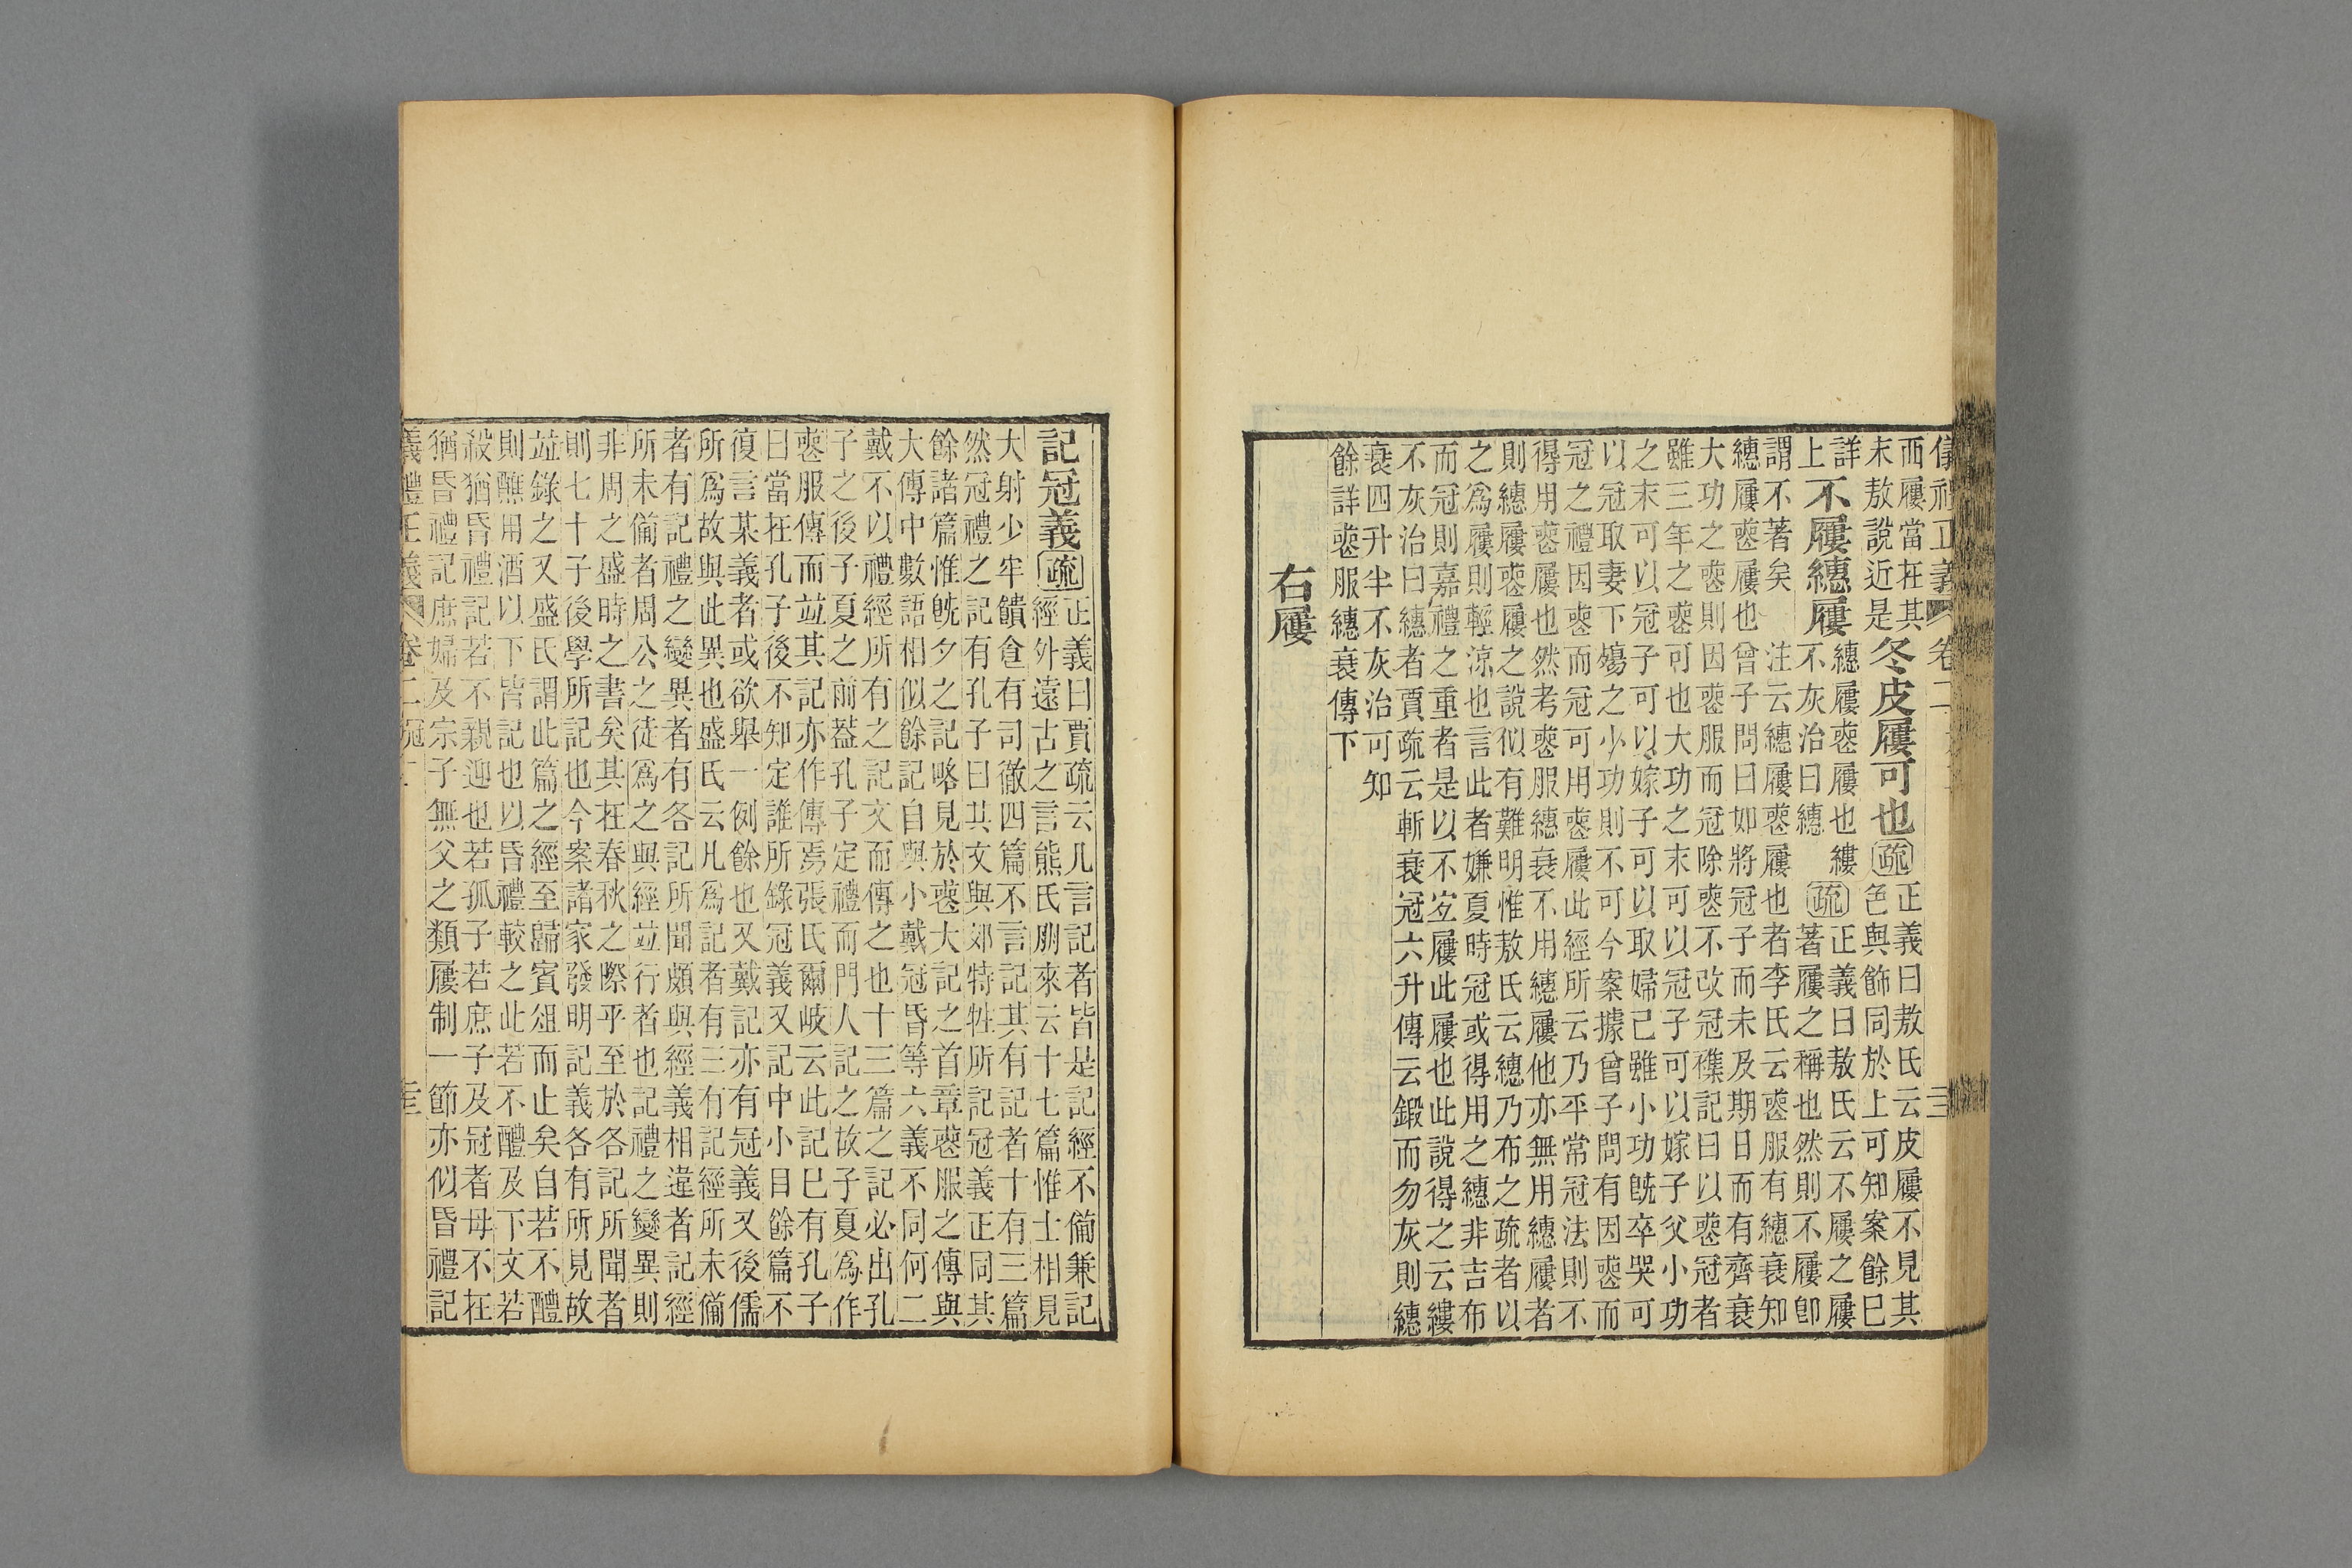 儀禮正義 卷二
西屨當在其
未敖說近是
冬皮屨可也 疏
正義曰敖氏云皮屨不見其
色與飾同於上可知案餘已
詳
上
不屨繐屨
繐屨喪屨也縷
不灰治曰繐
疏
正義曰敖氏云不屨之屨
著屨之稱也然則不屨卽
謂不著矣 注云繐屨喪屨也者李氏云喪服有繐衰知
繐屨喪屨也 曾子問曰如將冠子而未及期日而有齊衰
大功之喪則因喪服而冠除喪不改冠襍記曰以喪冠者
雖三年之喪可也大功之末可以冠子可以嫁子父小功
之末可以冠子可以嫁子可以取婦己雖小功旣卒哭可
以冠取妻下殤之小功則不可今案據曾子問有因喪而
冠之禮因喪而冠可用喪屨此經所云乃平常冠法則不
得用喪屨也然考喪服繐衰不用繐屨他亦無用繐屨者
則繐屨喪屨之說似有難明惟敖氏云繐乃布之疏者以
之爲屨則輕涼也言此者嫌夏時冠或得用之繐非吉布
而冠則嘉禮之重者是以不宜屨此屨也此說得之云縷
不灰治曰繐者賈疏云斬衰冠六升傳云鍛而勿灰則繐
衰四升半不灰治可知
餘詳喪服繐衰傳下
右屨
記冠義 疏
正義曰賈疏云凡言記者皆是記經不備兼記
經外遠古之言熊氏朋來云十七篇惟士相見
大射少牢饋食有司徹四篇不言記其有記者十有三篇
然冠禮之記有孔子曰其文與郊特牲所記冠義正同其
餘諸篇惟旣夕之記略見於喪大記之首章喪服之傳與
大傳中數語相似餘記自與小戴冠昏等六義不同何二
戴不以禮經所有之記文而傳之也十三篇之記必出孔
子之後子夏之前蓋孔子定禮而門人記之故子夏爲作
喪服傳而並其記亦作傳焉張氏爾岐云此記已有孔子
曰當在孔子後不知定誰所錄冠義又記中小目餘篇不
復言某義者或欲舉一例餘也又戴記亦有冠義又後儒
所爲故與此異也盛氏云凡爲記者有三有記經所未備
者有記禮之變異者有各記所聞頗與經義相違者記經
所未備者周公之徒爲之與經並行者也記禮之變異則
非周之盛時之書矣其在春秋之際乎至於各記所聞者
則七十子後學所記也今案諸家發明記義各有所見故
並錄之又盛氏謂此篇之經至歸賓俎而止矣自若不醴
則醮用酒以下皆記也以昏禮較之此若不醴及下文若
殺猶昏禮記若不親迎也若孤子若庶子及冠者母不在
猶昏禮記庶婦及宗子無父之類屨制一節亦似昏禮記
義禮正義 卷二